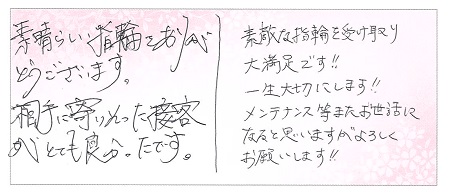 素晴らしい指輪をありが
とうございます。
相手に寄りそった接客
がとても良かったです。
素敵な指輪を受け取り
大満足です!!
一生大切にします!!
メンテナンス等またお世話に
なると思いますがよろしく
お願いします!!